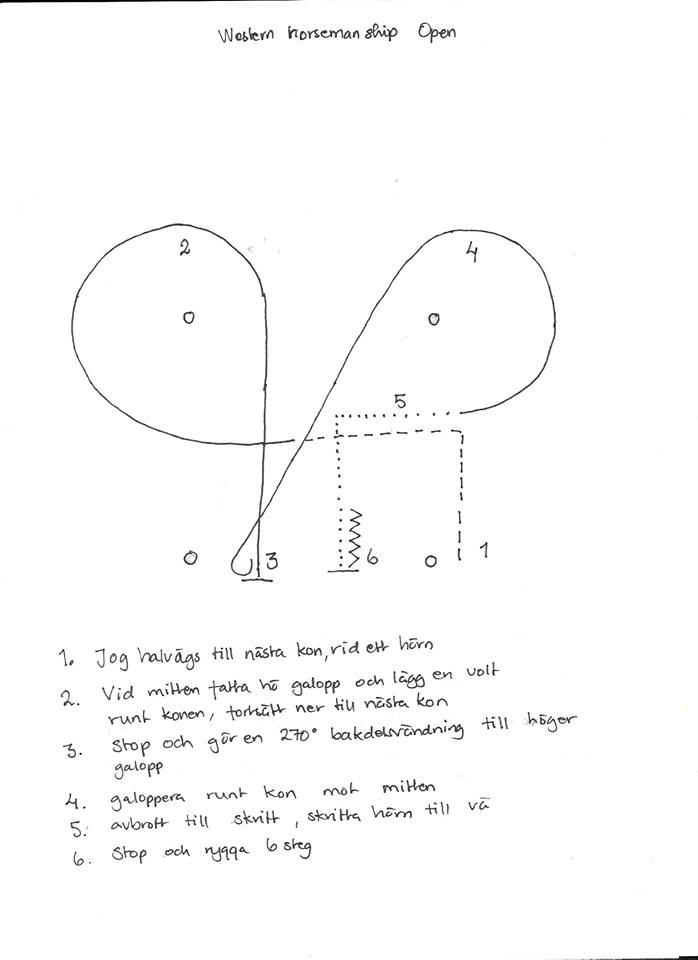 Western horsemanship Open
2
4
5
3
6
1
1. Jog halvägs till nästa kon, rid ett hörn
2. Vid mitten fatta hö galopp och lägg en volt
runt konen, fortsätt ner till nästa kon
3. Stop och gör en 270° bakdelsvändning till höger
galopp
4. galoppera runt kon mot mitten
5. avbrott till skritt, skritta hörn till vä
6. Stop och rygga 6 steg